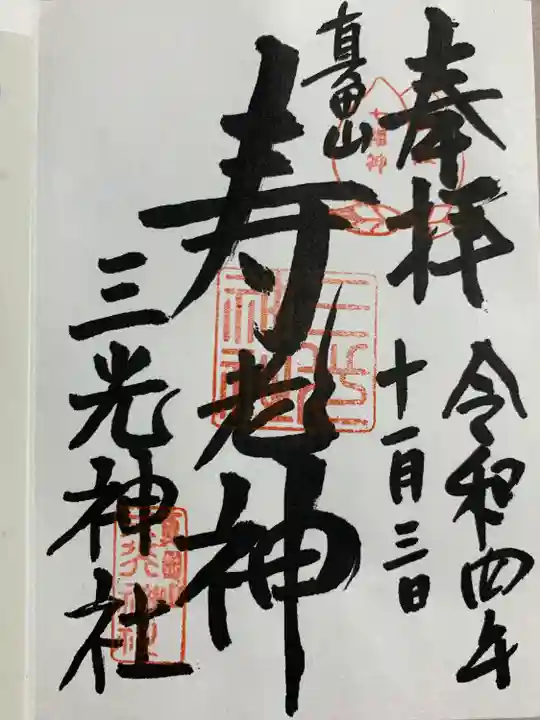 奉拝
令和四年
十一月三日
真田山
七福神
寿老神
三光神社